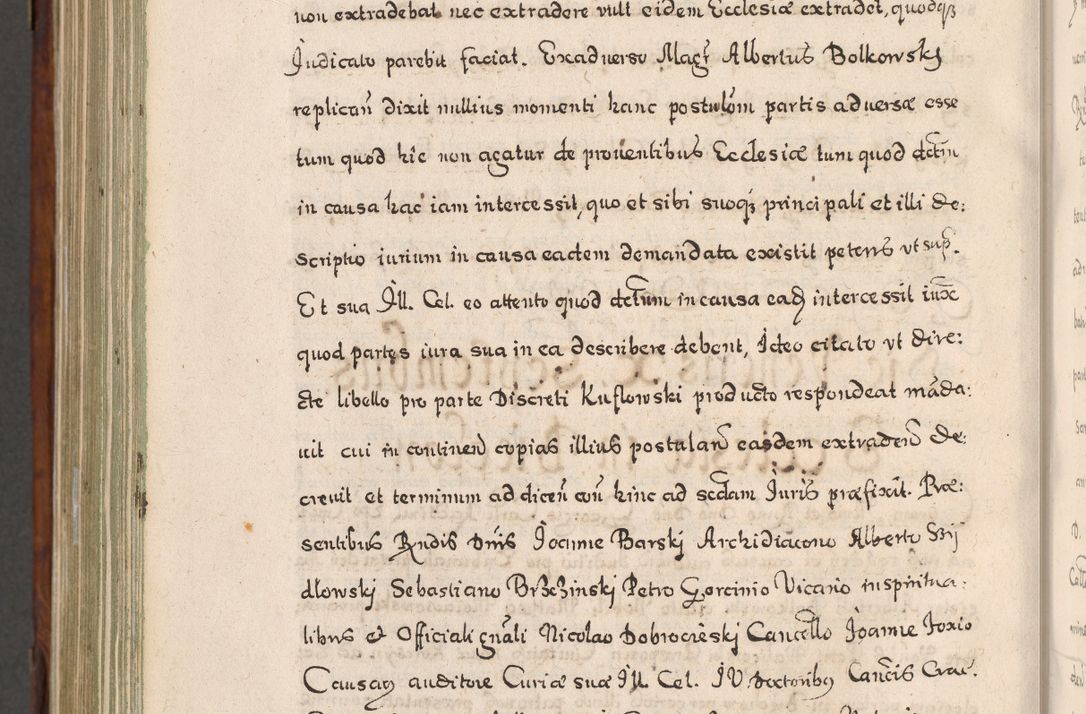 non extradebat nec extradere vult eidem Ecclesiæ extradet, quodq;
Judicato parebit faciat. Exadverso Magr Albertus Bolkowskj
replicañ dixit nullius momenti hanc postulõm partis adversæ esse
tum quod hic non agatur de proventibus Ecclesiæ tum quod detm
in causa hac iam intercessit, quo et sibi suoq; principali et illi de:
scriptio iurium in causa eadem demandata existit petens vt sup.
Et sua Ill. Cel. eo attento quod detum in causa ead intercessit iuxe
quod partes iura sua in ea describere debent, Ideo citato vt dire:
cte libello pro parte Discreti Kuflowski producto respondeat mãda:
uit cui in continen copias illius postulan easdem extraden de:
creuit et terminum ad dicen con hinc ad scdam Juris præfixit. Præ:
sentibus Rndis Dnis Joanne Barskj Archidiacono Alberto
dłowskj Sebastiano Brzezinski Petro Gorcinio Vicario in spiritua:
libus et Officiali gnali Nicolao Dobrocieskj Cancello Joanne Foxio
Causaȝ auditore Curiæ suæ Ill. Cel. IV Doctoribȝ Cancis Crac.